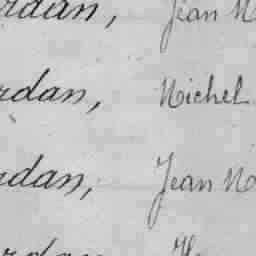 rdan, Jean N
rdan, Nichel
rdan, Jean N
rdan